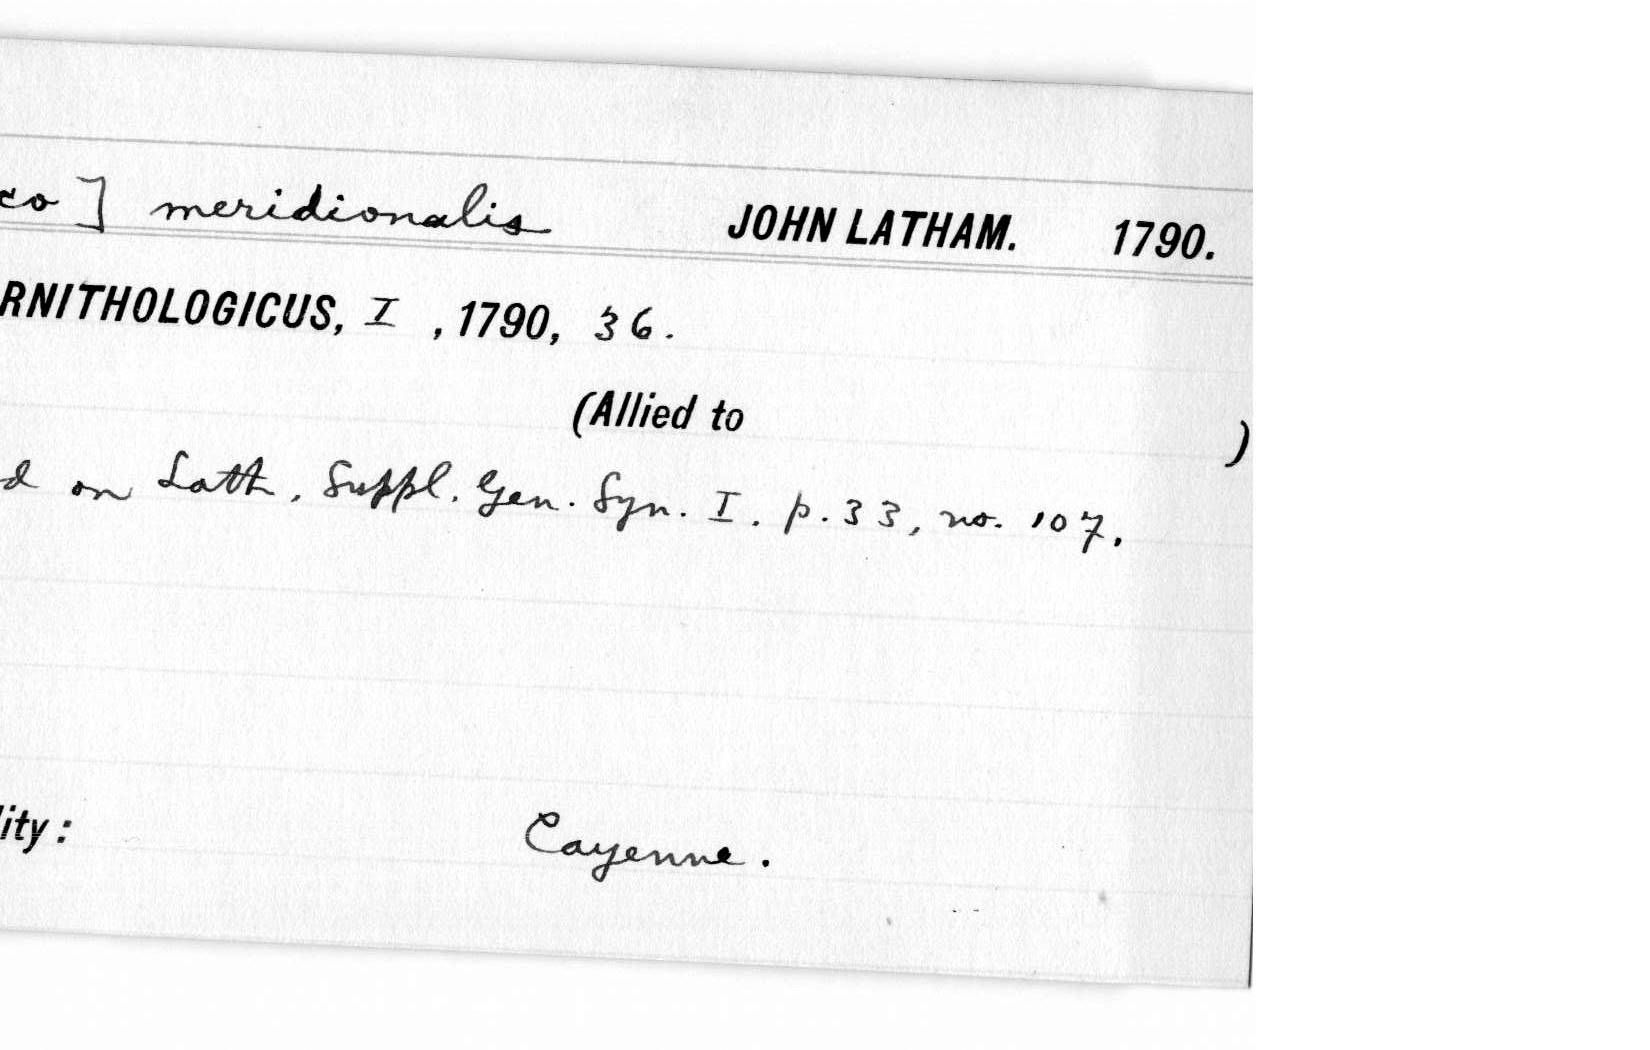 co] meridionalis JOHN LATHAM. 1790.
RNITHOLOGICUS, I , 1790, 36.
(Allied to )
d on Lath. Suppl. Gen. Syn. I. p. 33, no. 107.
lity: Cayenne.